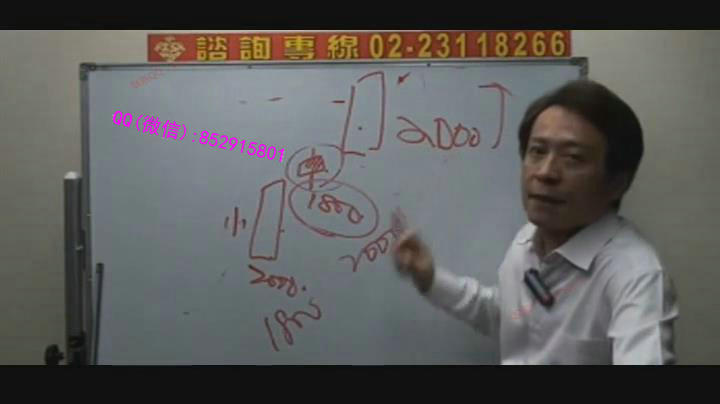 諮詢專線02-23118266
QQ(微信):852915801
2000
車
1800
小
2000
2000.
1800